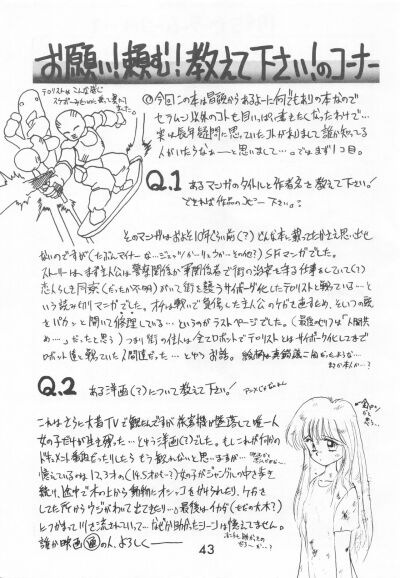 お願い!頼む!教えて下さい!のコーナー
テロリストはこんな感じ
スケボーみたいな
◎今回この本は冒頭からあるよーに何でもありの本なので
セラムン以外のコトも目いっぱい書きたくなったわけで…
実は長年疑問に思っていたコトがありまして誰か知ってる
人がいたらなぁーと思いまして…。ではまず1コ目。
Q.1 あるマンガのタイトルと作者名を教えて下さい!
できれば作品のコピー下さい。
そのマンガはおよそ10年ぐらい前(?)どんな本に載ってたかさえ思い出せ
ないのですが(たぶんマイナーな… その他?)SFマンガでした。
ストーリーは、まず主人公は警察関係か軍関係者で街の治安を守る仕事をしていて(?)
恋人らしき同僚(だったか不明)がいて街を襲うサイボーグ化したテロリストと戦っている…と
いう読み切りマンガでした。オチは戦いで負傷した主人公のケガを直すため、そいつの頭
をパカッと開いて修理している…というのがラストページでした。(最後のセリフは「人間共
め…」だったと思う)つまり街の住人は全てロボットでテロリストとはサイボーグ化してまで
ロボット達と戦っていた人間達だった…とゆうお話。
Q.2 ある洋画(?)について教えて下さい!
これはさらに大昔TVで観たんですが旅客機が墜落して唯一人
女の子だけが生き残った…とゆう洋画(?)でした。もしこれが
ドキュメント番組だったりしたらもう救われないと思いますが…
憶えているのは12,3才の(14,5才かも…?)女の子がジャングルの中を歩き
続け、途中で木の上から動物にオシッコをかけられたり、ケガを
した所からウジがわいて出てきたり…。最後はイカダ(ただの大木?)
につかまって川を流されていって…なぜか助かったシーンは憶えてません。
誰か映画通の人、よろしくーーー
43